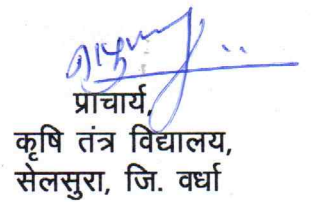 प्राचार्य,
कृषि तंत्र विद्यालय,
सेलसुरा, जि. वर्धा